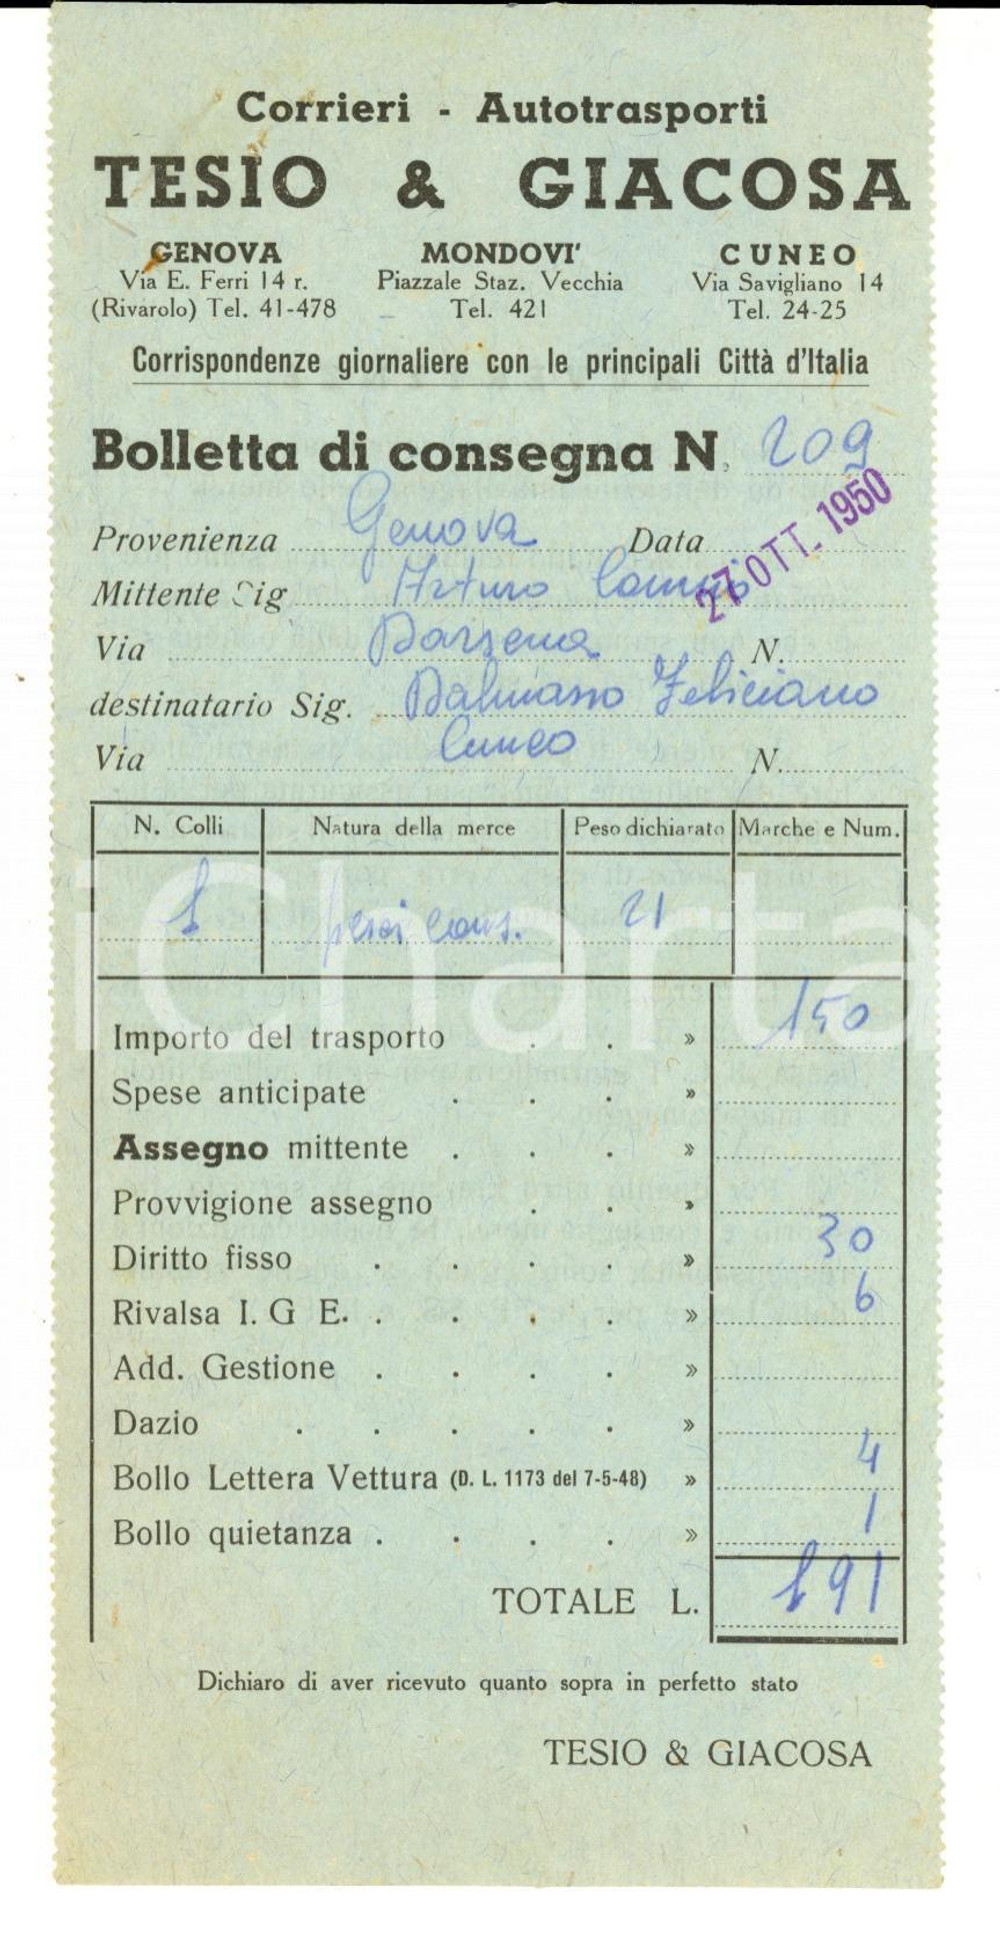 Corrieri - Autotrasporti
TESIO & GIACOSA
GENOVA MONDOVI' CUNEO
Via E. Ferri 14 r. Piazzale Staz. Vecchia Via Savigliano 14
(Rivarolo) Tel. 41-478 Tel. 421 Tel. 24-25
Corrispondenze giornaliere con le principali Città d'Italia
Bolletta di consegna N. 209
Provenienza Genova Data 27 OTT. 1950
Mittente Sig Arturo
Via Darsena N.
destinatario Sig. Dalmasso Feliciano
Via Cuneo N.
N. Colli Natura della merce Peso dichiarato Marche e Num.
1 pesci cons. 21
iCharta
Importo del trasporto . . » 150
Spese anticipate . . . »
Assegno mittente . . . »
Provvigione assegno . . »
Diritto fisso . . . . » 30
Rivalsa I. G E. . . . . » 6
Add. Gestione . . . . »
Dazio . . . . . »
Bollo Lettera Vettura (D. L. 1173 del 7-5-48) » 4
Bollo quietanza . . . . » 1
TOTALE L. 191
Dichiaro di aver ricevuto quanto sopra in perfetto stato
TESIO & GIACOSA